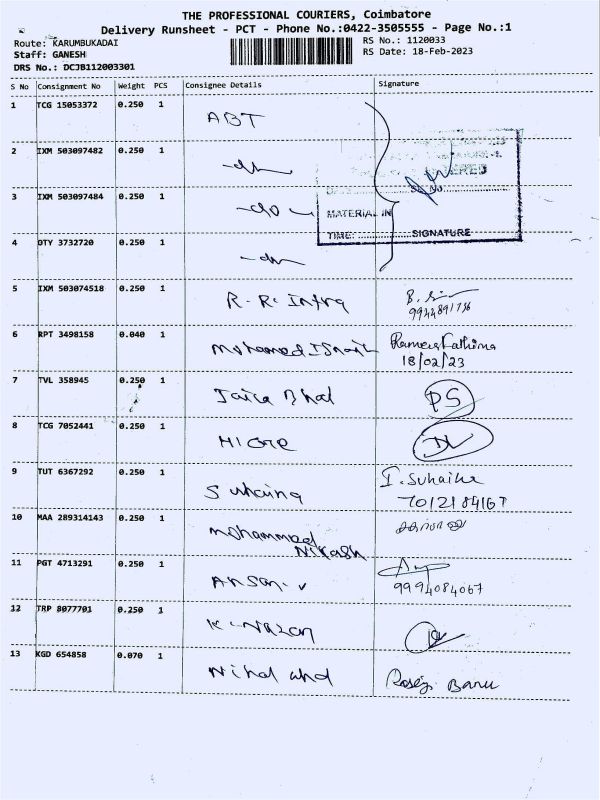 THE PROFESSIONAL COURIERS, Coimbatore
Delivery Runsheet - PCT - Phone No.:0422-3505555 - Page No.:1
Route: KARUMBUKADAI
RS No.: 1120033
Staff: GANESH
RS Date: 18-Feb-2023
DRS No.: DCJB112003301
S No Consignment No Weight PCS Consignee Details Signature
1 TCG 15053372 0.250 1 ABT
2 IXM 503097482 0.250 1 -do-
3 IXM 503097484 0.250 1 -do-
MATERIAL IN
TIME: SIGNATURE
4 OTY 3732720 0.250 1 -do-
5 IXM 503074518 0.250 1 R.R. Infra
6 RPT 3498158 0.040 1 Mohamed Ismail
18/02/23
7 TVL 358945 0.250 1 PS
8 TCG 7052441 0.250 1
9 TUT 6367292 0.250 1 I. Suhaina
7012184167
10 MAA 289314143 0.250 1 Mohammed
11 PGT 4713291 0.250 1 Ansar
9994084067
12 TRP 8077701 0.250 1
13 KGD 654858 0.070 1 Banu